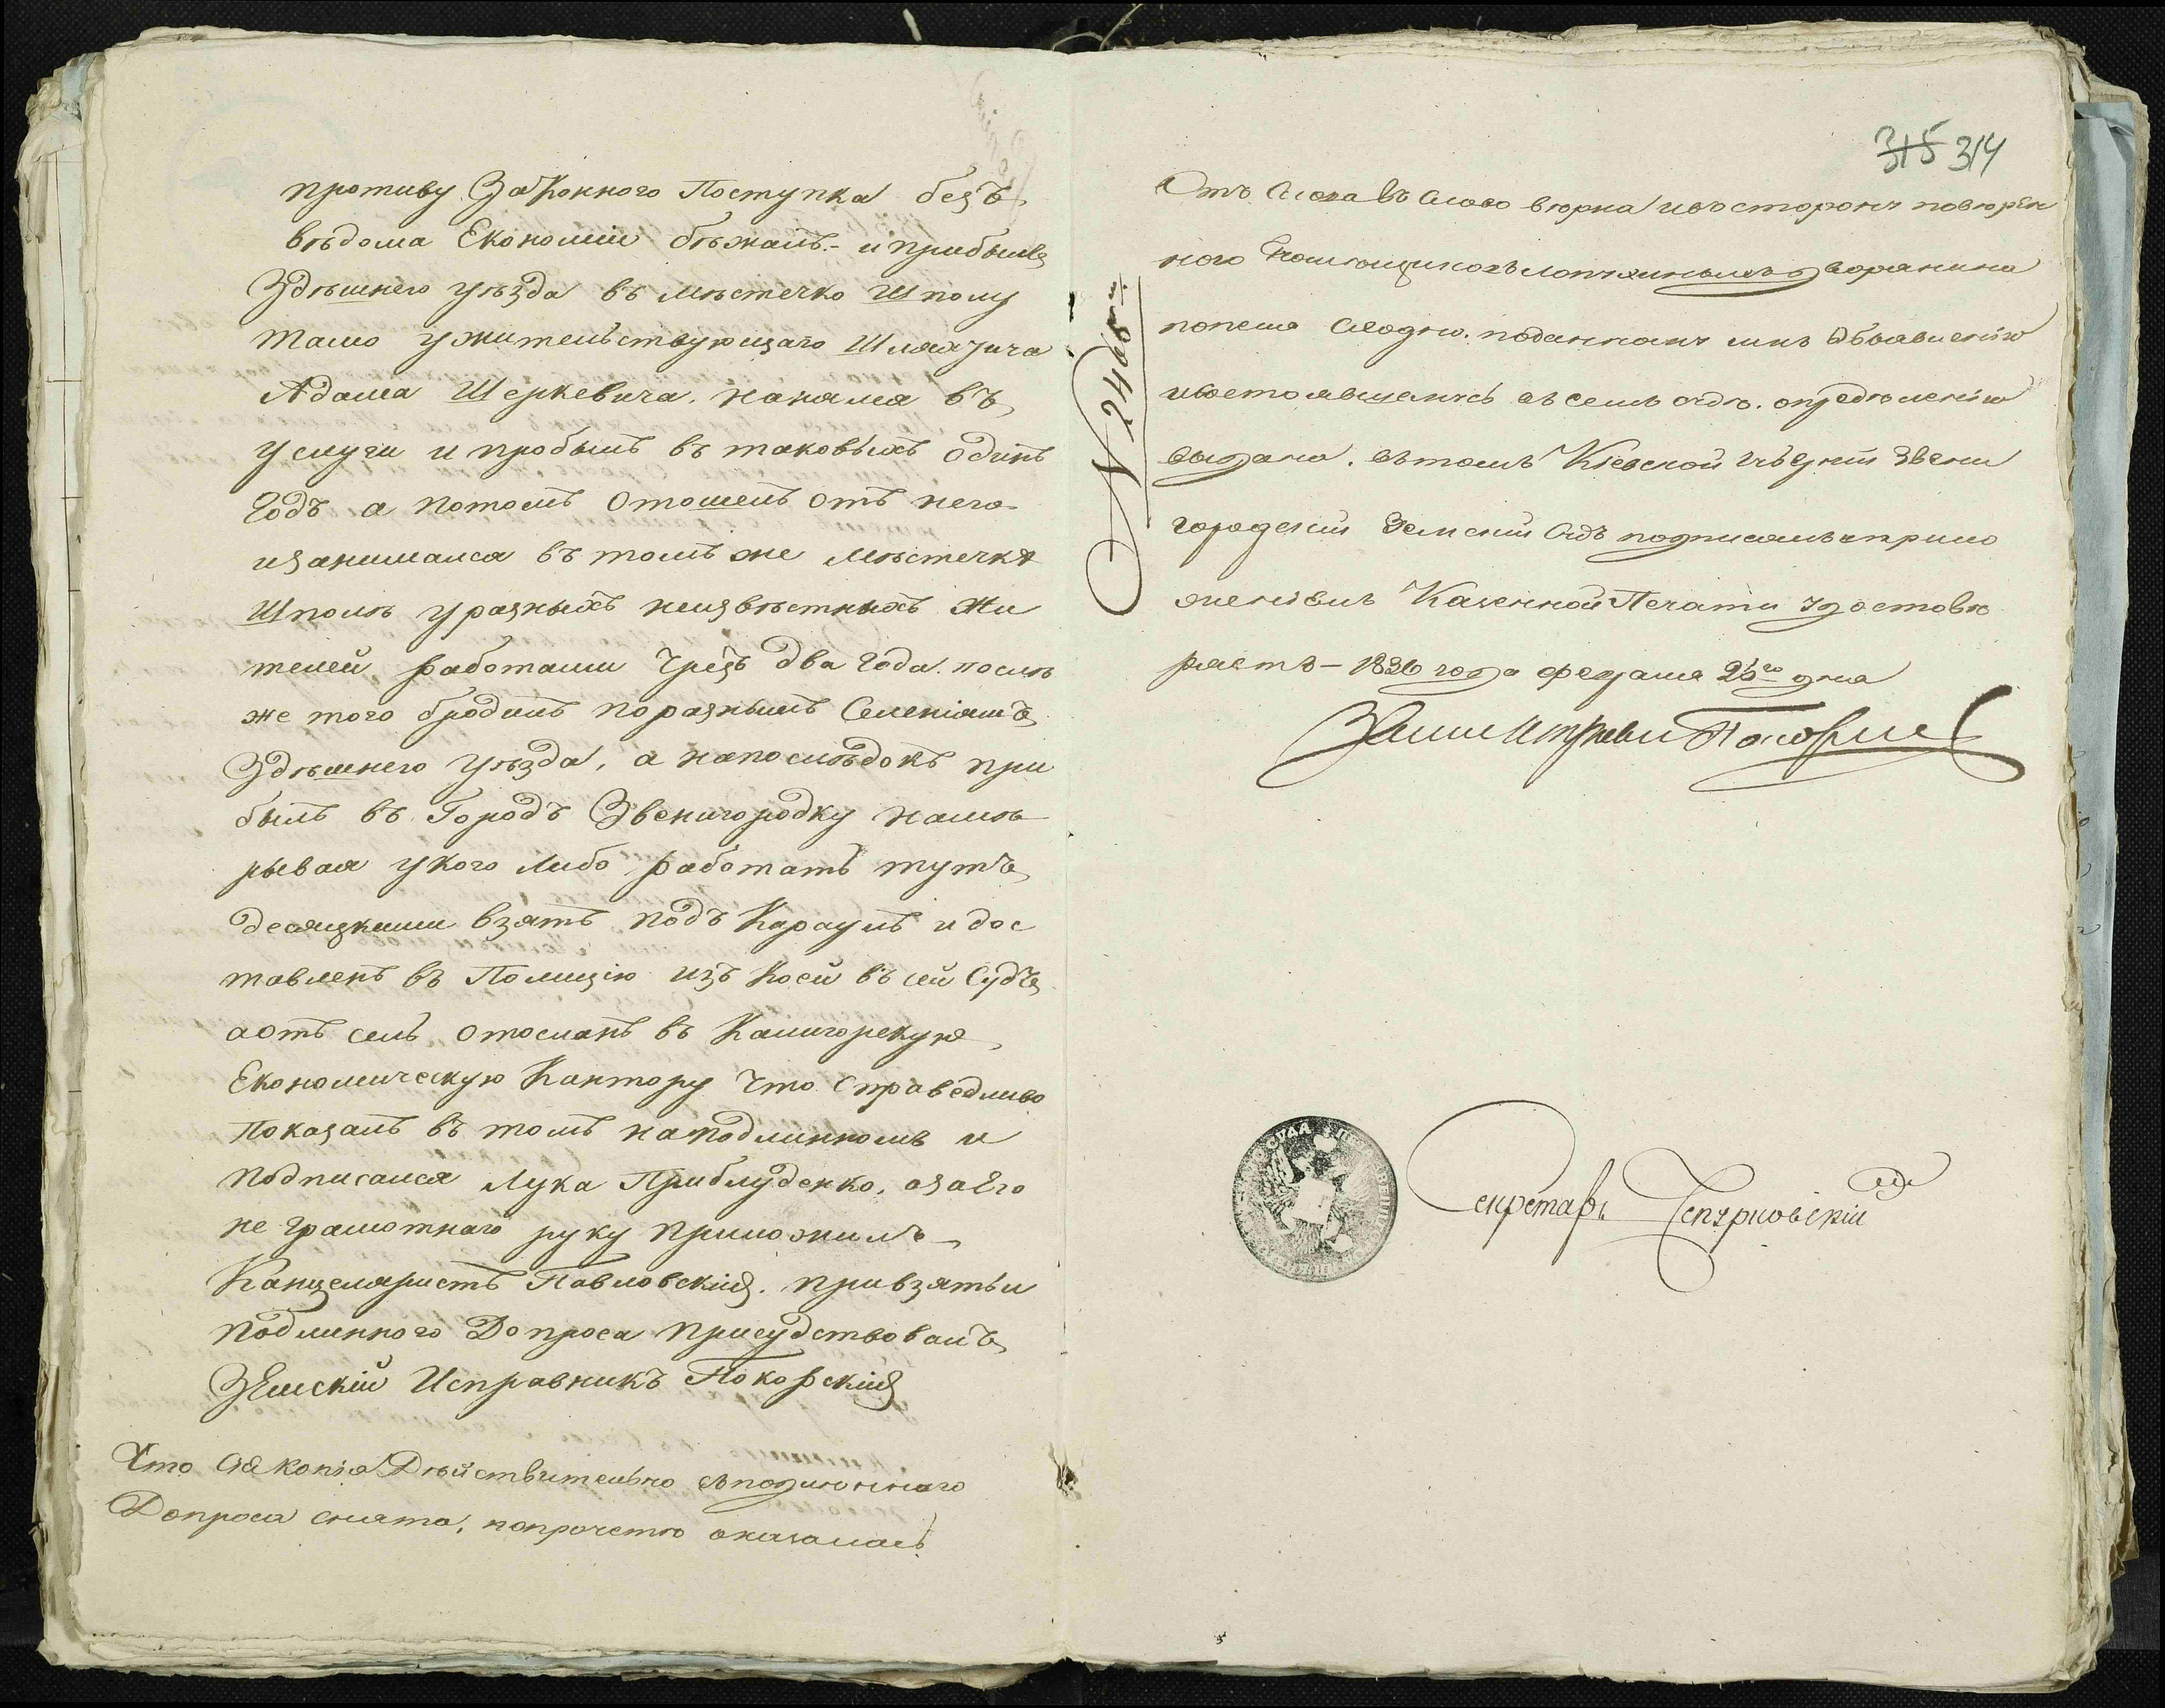 противу Законного Поступка безъ
вѣдома Економіи бѣжалъ - и прибывъ
Здѣшнего уѣзда въ мѣстечко Шполу
тамо ужительствующаго Шляхтича
Адама Шеркевича. нанялся въ
услуги и пробылъ въ таковыхъ одинъ
Годъ а потомъ отошелъ отъ него
изанимался въ томъ же мѣстечкѣ
Шполѣ уразныхъ неизвѣстныхъ жи
телей работами чрезъ два года. послѣ
же того бродилъ поразнымъ Селеніямъ
Здѣшнего уѣзда, а напослѣдокъ при
былъ въ Городъ Звенигородку намѣ
рывая укого либо работать тутъ
десяцкими взятъ подъ Караулъ и дос
тавленъ въ Полицію изъ коей въ сей Судъ
аотъ сель отосланъ въ Калигорскую
Економическую Кантору что Справедливо
показалъ въ томъ наподлинномъ и
подписался Лука Приблуденко, аза Его
не грамотнаго руку приложилъ
Канцеляристъ Павловскій. привзятьи
подлинного Допроса присудствовалъ
Земскій Исправникъ Покорскій
Что сія копія Дѣйствительно съподлиннаго
Допроса снята, попрочетю оказалась
315 314
Отъ Слова въ Слово вюрна ивъсторонѣ повюрен
ного дворянина
попеля поданному мнѣ объявленію
въсемъ опредѣленію
выдана. вътомъ Кіевской Губерніи Звени
городскій Земскій Судъ подписомъ сприло
женіемъ Казенной Печати удостовѣ
ряетъ - 1836 года февраля 25го дня
N 2408й
Земскій Исправникъ Покорскій
Секретарь